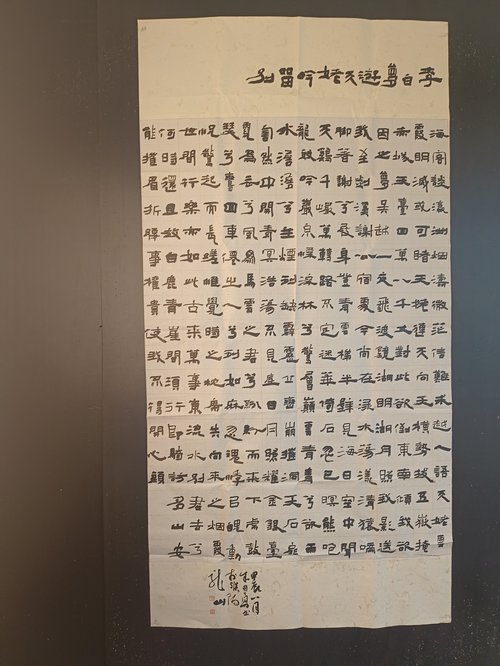 李白夢遊天姥吟留别
海客談瀛洲煙濤微茫信難求越人語天姥雲
霞明滅或可睹天姥連天向天橫勢拔五嶽掩
赤城天臺四萬八千丈對此欲倒東南傾我欲
因之夢吳越一夜飛渡鏡湖月湖月照我影送
我至剡溪謝公宿處今尚在淥水蕩漾清猿啼
脚著謝公屐身登青雲梯半壁見海日空中聞
天雞千巖萬轉路不定迷花倚石忽已暝熊咆
龍吟殷巖泉慄深林兮驚層巔雲青青兮欲雨
水澹澹兮生煙列缺霹靂丘巒崩摧洞天石扉
訇然中開青冥浩蕩不見底日月照耀金銀臺
霓為衣兮風為馬雲之君兮紛紛而來下虎鼓
瑟兮鸞回車仙之人兮列如麻忽魂悸以魄動
恍驚起而長嗟惟覺時之枕席失向來之煙霞
世間行樂亦如此古來萬事東流水別君去兮
何時還且放白鹿青崖間須行即騎訪名山安
能摧眉折腰事權貴使我不得開心顏
甲辰八月
龍山